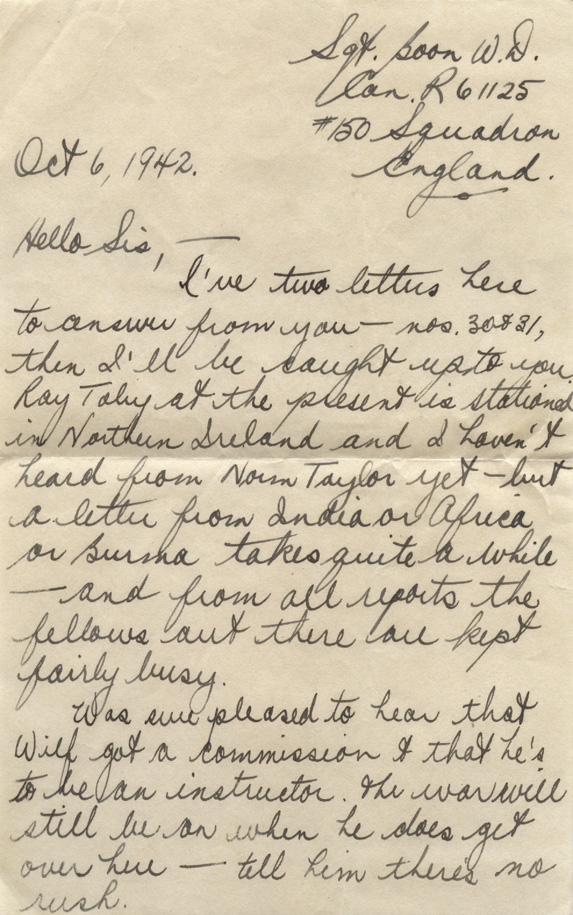 Sgt. Boon W.D.
Can. R61125
#150 Squadron
England.
Oct 6, 1942.
Hello Sis, —
I've two letters here
to answer from you — nos. 30 & 31,
then I'll be caught up to you.
Ray Toby at the present is stationed
in Northern Ireland and I haven't
heard from Norm Taylor yet — but
a letter from India or Africa
or Burma takes quite a while
— and from all reports the
fellows out there are kept
fairly busy.
Was sure pleased to hear that
Wilf got a commission & that he's
to be an instructor. The war will
still be on when he does get
over here — tell him there's no
rush.